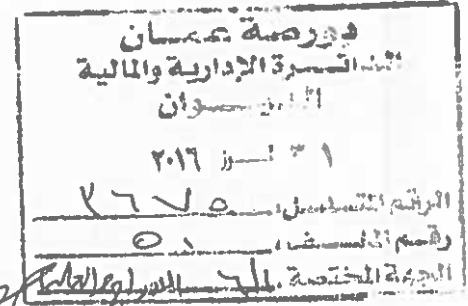 بورصة عمان
الدائرة الإدارية والمالية
الديوان
٣١ تموز ٢٠١٦
الرقم المتسلسل: ٣٦٧٥
رقم الملف:
الجهة المختصة: